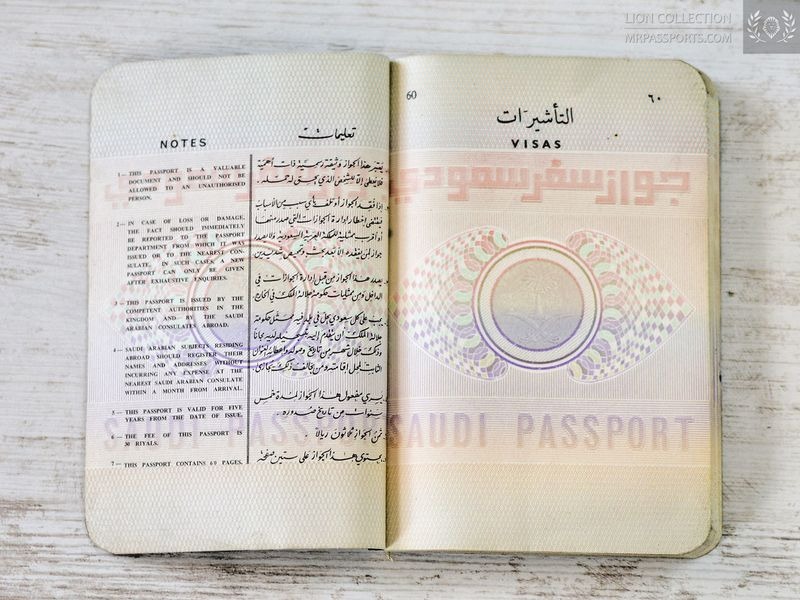 LION COLLECTION
MRPASSPORTS.COM
NOTES
1— THIS PASSPORT IS A VALUABLE
DOCUMENT AND SHOULD NOT BE
ALLOWED TO AN UNAUTHORISED
PERSON.
2— IN CASE OF LOSS OR DAMAGE,
THE FACT SHOULD IMMEDIATELY
BE REPORTED TO THE PASSPORT
DEPARTMENT FROM WHICH IT WAS
ISSUED OR TO THE NEAREST CON-
SULATE. IN SUCH CASES A NEW
PASSPORT CAN ONLY BE GIVEN
AFTER EXHAUSTIVE ENQUIRIES.
3— THIS PASSPORT IS ISSUED BY THE
COMPETENT AUTHORITIES IN THE
KINGDOM AND BY THE SAUDI
ARABIAN CONSULATES ABROAD.
4— SAUDI ARABIAN SUBJECTS RESIDING
ABROAD SHOULD REGISTER THEIR
NAMES AND ADDRESSES WITHOUT
INCURRING ANY EXPENSE AT THE
NEAREST SAUDI ARABIAN CONSULATE
WITHIN A MONTH FROM ARRIVAL.
5— THIS PASSPORT IS VALID FOR FIVE
YEARS FROM THE DATE OF ISSUE.
6— THE FEE OF THIS PASSPORT IS
30 RIYALS.
7— THIS PASSPORT CONTAINS 60 PAGES.
تعليمات
يعتبر هذا الجواز وثيقة رسمية ذات أهمية
فلا يعطى إلا للشخص الذي يحق له حمله.
إذا فقد الجواز أو تلف لأي سبب من الأسباب
فيقتضي اخطار ادارة الجوازات التي صدر منها
أو أقرب ممثلية للمملكة العربية السعودية ولا يصدر
جواز لمن يفقده إلا بعد بحث وتمحيص شديدين
يصدر هذا الجواز من قبل إدارة الجوازات في
الداخل ومن ممثليات حكومة جلالة الملك في الخارج
يسري مفعول هذا الجواز لمدة خمس
سنوات من تاريخ صدوره.
ثمن الجواز ثلاثون ريالاً.
يحتوي هذا الجواز على ستين صفحة
SAUDI PASSPORT
60
٦٠
التأشيرات
VISAS
جواز سفر سعودي
SAUDI PASSPORT